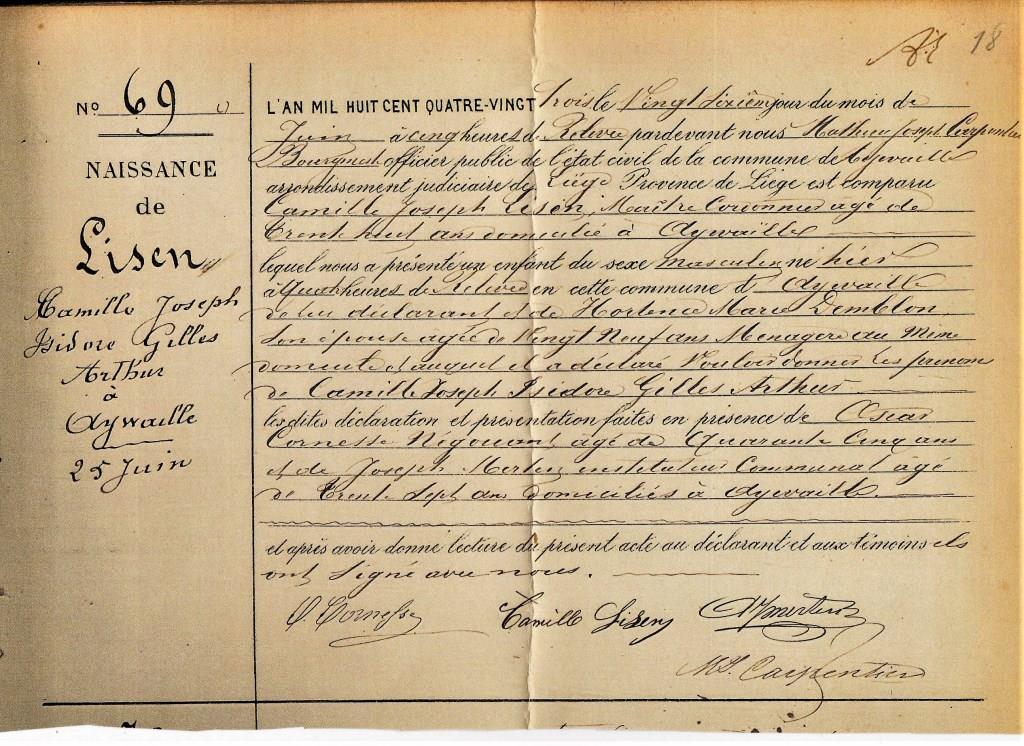 18
No 69
NAISSANCE
de
Lisen
Camille Joseph
Isidore Gilles
Arthur
à
Aywaille
25 Juin
L'AN MIL HUIT CENT QUATRE-VINGT Trois le Vingt Sixième jour du mois de
Juin à cinq heures de Relevée pardevant nous Mathieu Joseph Carpentier
Bourgmestre officier public de l'état civil de la commune de Aywaille
arrondissement judiciaire de Liège Province de Liège est comparu
Camille Joseph Lisen, Maître Cordonnier agé de
Trente huit ans domicilié à Aywaille
lequel nous a présenté un enfant du sexe masculin né hier
à quatre heures de Relevée en cette commune d'Aywaille
de lui déclarant et de Hortence Marie Demblon
son épouse agée de Vingt Neuf ans Menagere au même
domicile et auquel il a déclaré Vouloir donner les prenoms
de Camille Joseph Isidore Gilles Arthur
les dites déclaration et présentation faites en présence de Oscar
Cornesse Négociant agé de Quarante Cinq ans
et de Joseph Mertens instituteur Communal agé
de Trente Sept ans domiciliés à Aywaille
et après avoir donné lecture du présent acte au déclarant et aux témoins ils
ont signé avec nous.
O. Cornesse Camille Lisen J Mertens
M. J. Carpentier